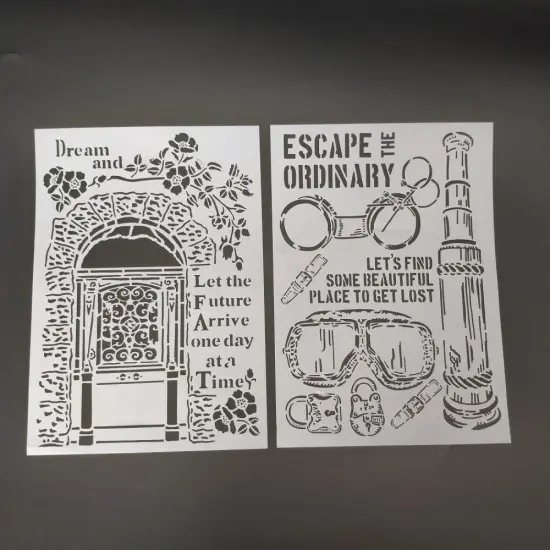 Dream
and
Let the
Future
Arrive
one day
at a
Time
ESCAPE THE
ORDINARY
LET'S FIND
SOME BEAUTIFUL
PLACE TO GET LOST